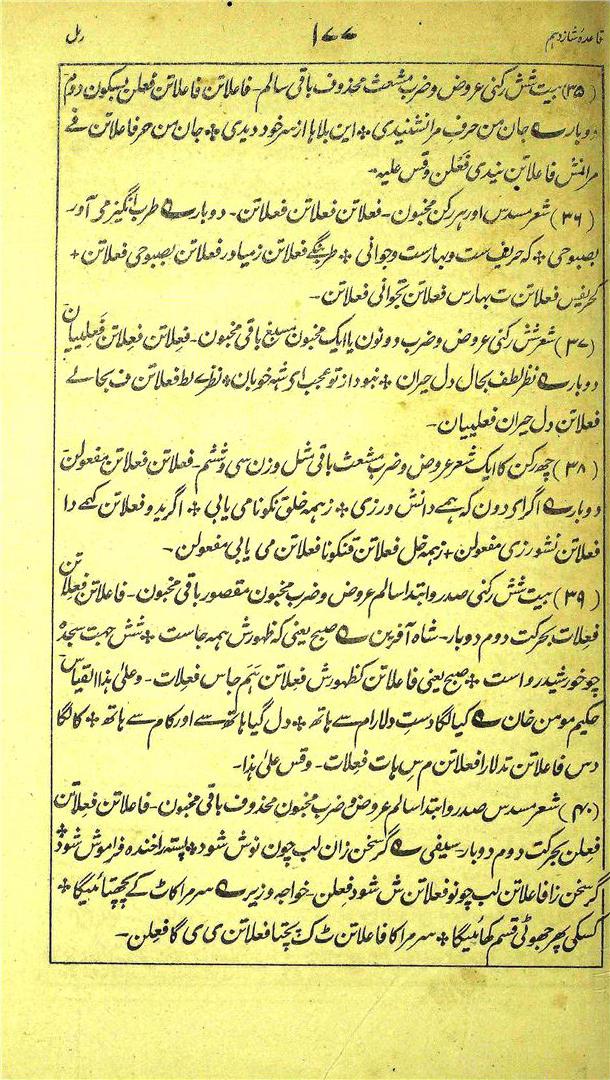 قاعدۂ شانزدہم ۱۷۷ رمل
(۳۵) بیت شش رکنی عروض و ضرب مشعث محذوف باقی سالم۔ فاعلاتن فاعلاتن فعلن بسکون دوم
دوبار ؎ جان من حرف مرا نشنیدی ٭ این بلاہا از سر خود دیدی ٭ جان من حر فاعلاتن فے
مرانش فاعلاتن نیدی فعلن وقس علیہ۔
(۳۶) شعر مسدس اور ہر رکن مخبون۔ فعلاتن فعلاتن فعلاتن۔ دوبار ؎ طرب انگیز می آور۔
بصبوحی ٭ کہ حریف ست و بہارست و جوانی ٭ طربنگے فعلاتن زمیاور فعلاتن بصبوحی فعلاتن +
کحریفس فعلاتن ت بہارس فعلاتن تجوانی فعلاتن۔
(۳۷) شعر شش رکنی عروض و ضرب دونون یا ایک مخبون مسبغ باقی مخبون۔ فعلاتن فعلاتن فعلییان
دوبار ؎ نظر لطف بحال دل حیران ٭ نبود از تو عجب ای شہ خوبان ٭ نظرے لط فعلاتن ف بحالے
فعلاتن دل حیران فعلییان۔
(۳۸) چھ رکن کا ایک شعر عروض و ضرب مشعث باقی مثل وزن سی و ششم۔ فعلاتن فعلاتن مفعولن
دوبار ؎ اگر ای دون کہ ہمے دانش ورزی ٭ ز ہمہ خلق نکونامی یابی ٭ اگرید و فعلاتن کہمے دا
فعلاتن نشورزی مفعولن + زہمہ خل فعلاتن قنکونا فعلاتن می یابی مفعولن۔
(۳۹) بیت شش رکنی صدر و ابتدا سالم عروض و ضرب مخبون مقصور باقی مخبون۔ فاعلاتن فعلاتن
فعلات بحرکت دوم دوبار۔ شاہ آفرین ؎ صبح یعنی کہ ظہورش ہمہ جاست ٭ شش جہت سجدہ
چو خورشید رواست ٭ صبح یعنی فاعلاتن کظہورش فعلاتن ہَمَ جاس فعلات۔ وعلیٰ ہذا القیاس
حکیم مومن خان ؎ کیا لگا دستِ دلارام سے ہاتھ ٭ دل گیا ہاتھ سے اور کام سے ہاتھ ٭ کا لگا
دس فاعلاتن تدلارا فعلاتن م سِ ہات فعلات۔ وقس علیٰ ہذا۔
(۴۰) شعر مسدس صدر و ابتدا سالم عروض و ضرب مخبون محذوف باقی مخبون۔ فاعلاتن فعلاتن
فعلن بحرکت دوم دوبار۔ سیفی ؎ گر سخن زان لب چون نوش شود ٭ پستہ را خندہ فراموش شود ٭
گر سخن زا فاعلاتن لب چو نو فعلاتن ش شود فعلن۔ خواجہ وزیر ؎ سر مرا کاٹ کے پچھتائیگا ٭
کسکی پھر جھوٹی قسم کھائیگا ٭ سر مرا کا فاعلاتن ٹ ک پچتا فعلاتن ی ی گا فعلن۔